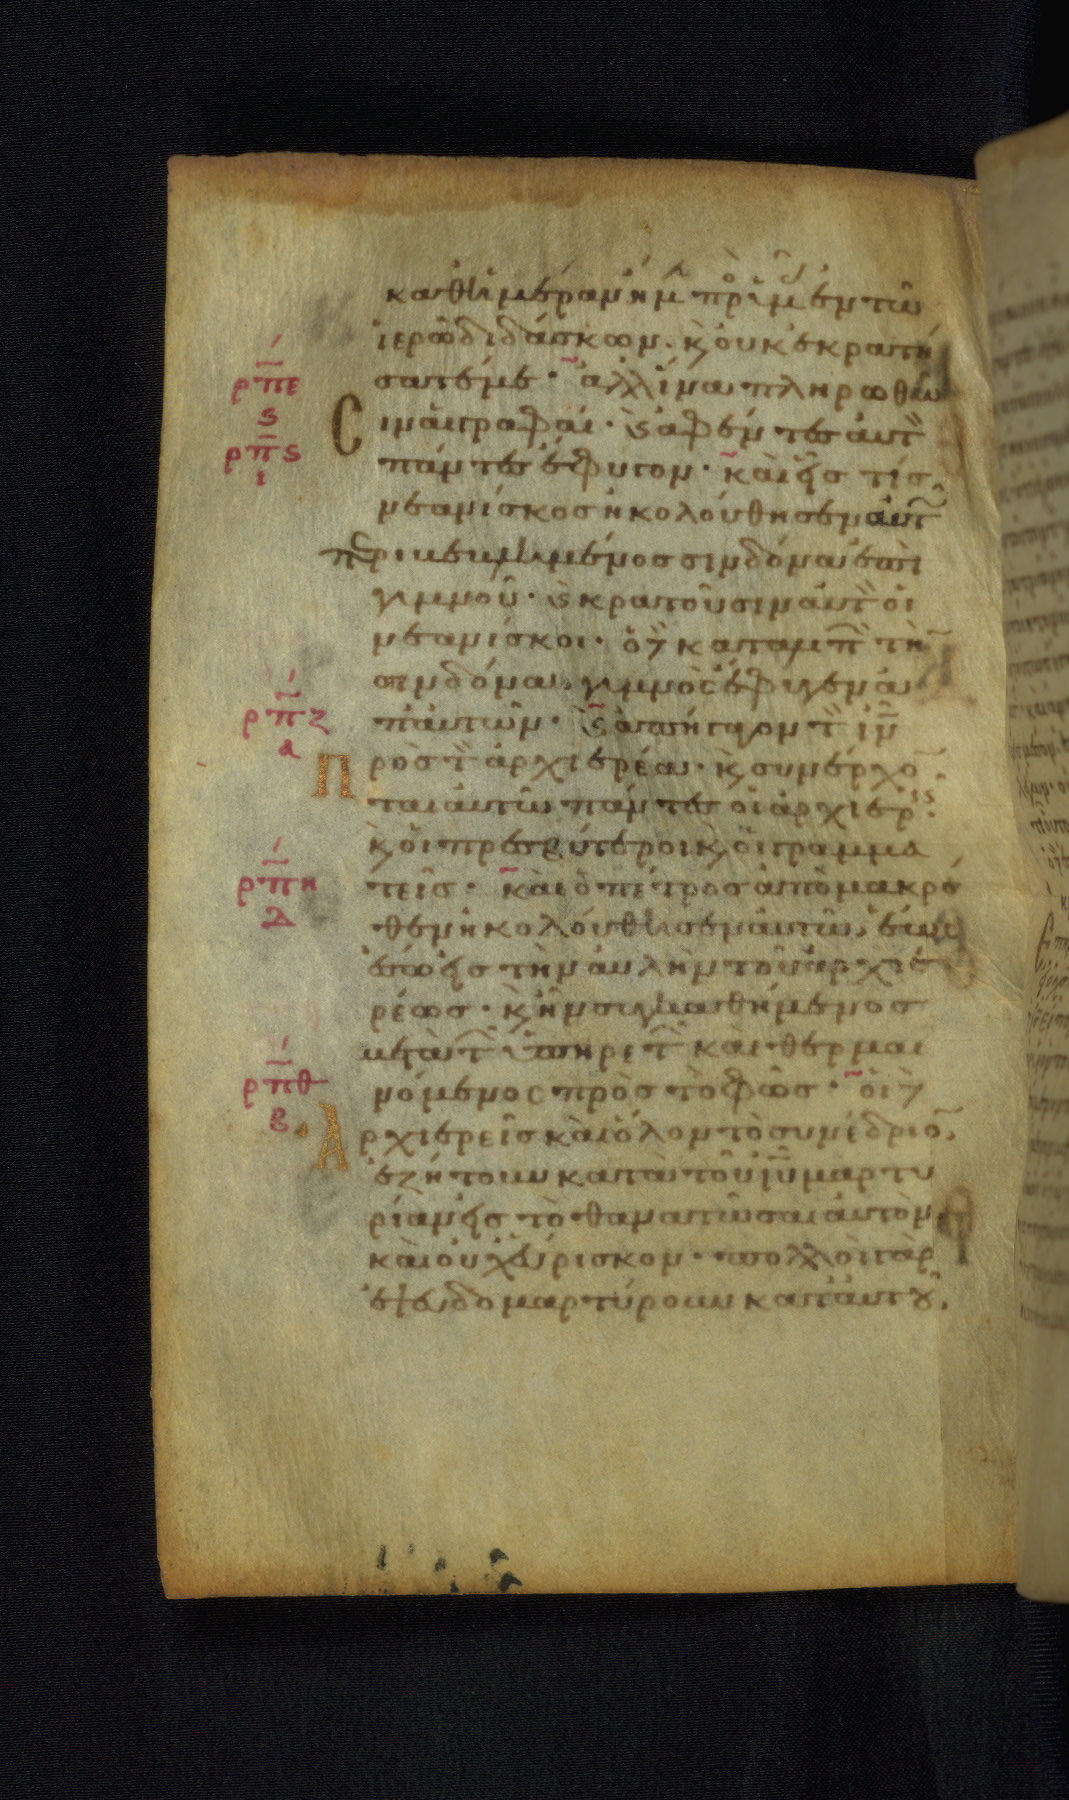 καθ ἡμέραν ἤμ πρὸ ὑμ ἐν τῶ
ἱερῶ διδάσκων. κ οὐκ ἐκρατή
ρπε
σατέ με· ἀλλ ἵνα πληρωθῶ
ς
σιν αἱ γραφαί· κ ἀφέντες αὐτ
ρπς
πάντες ἔφυγον· καὶ εἷς τίς
ι
νεανίσκος ἠκολούθησεν αὐτ
περιβεβλημένος σινδόνα ἐπὶ
γυμνοῦ· κ κρατοῦσιν αὐτ οἱ
νεανίσκοι· ὁ δὲ καταλιπ τὴ
σινδόνα, γυμνὸς ἔφυγεν ἀ
ρπζ
π αὐτῶν· κ ἀπήγαγον τ ιν
α
πρὸς τ ἀρχιερέα· κ συνέρχο
ται αὐτῶ πάντες οἱ ἀρχιερ
κ οἱ πρεσβύτεροι κ οἱ γραμμα
ρπη
τεῖς· καὶ ὁ πέτρος ἀπὸ μακρό
δ
θεν ἠκολούθησεν αὐτῶ, ἕως
ἔσω εἰς τὴν αὐλὴν τοῦ ἀρχιε
ρέως· κ ἦν συγκαθήμενος
μετὰ τ ὑπηρετ καὶ θερμαι
ρπθ
νόμενος πρὸς τὸ φῶς· οἱ δὲ
β
ἀρχιερεῖς καὶ ὅλον τὸ συνέδριο,
ἐζήτουν κατὰ τοῦ ιυ μαρτυ
ρίαν εἰς τὸ θανατῶσαι αὐτὸν
καὶ οὐχ εὕρισκον· πολλοὶ γὰρ
ἐψευδομαρτύρουν κατ αὐτοῦ,